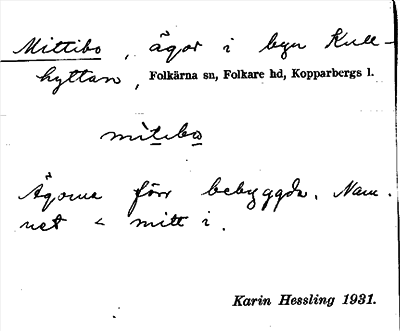 Mittibo, ägor i byn Kull-
hyttan, Folkärna sn, Folkare hd, Kopparbergs l.
mitibo
Ägorna förr bebyggda. Nam-
net < mitt i.
Karin Hessling 1931.